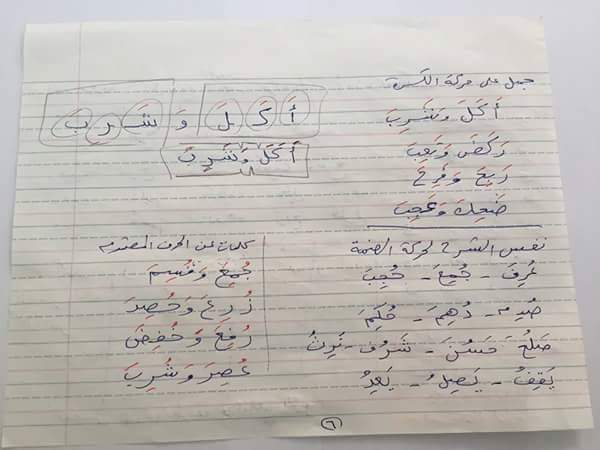 جمل على حركة الكسرة
أَ كَ لَ وَ شَ رِ بَ
أَكَلَ وَشَرِبَ
أَكَلَ وَشَرِبَ
رَكَضَ وَتَعِبَ
رَبِحَ وَفَرِحَ
ضَحِكَ وَعَجِبَ
نفس الشرح لحركة الضمة
عُرِفَ - جُمِعَ - حُجِبَ
دُهِمَ - حُكِمَ
صَلُحَ - حَسُنَ - شَرُفَ - يَرِثُ
يَقِفُ - يَصِلُ - يَعِدُ
كلمات عن الحرف المضموم
جُمِعَ وَقُسِمَ
زُرِعَ وَحُصِدَ
رُفِعَ وَخُفِضَ
عُصِرَ وَشُرِبَ
٦